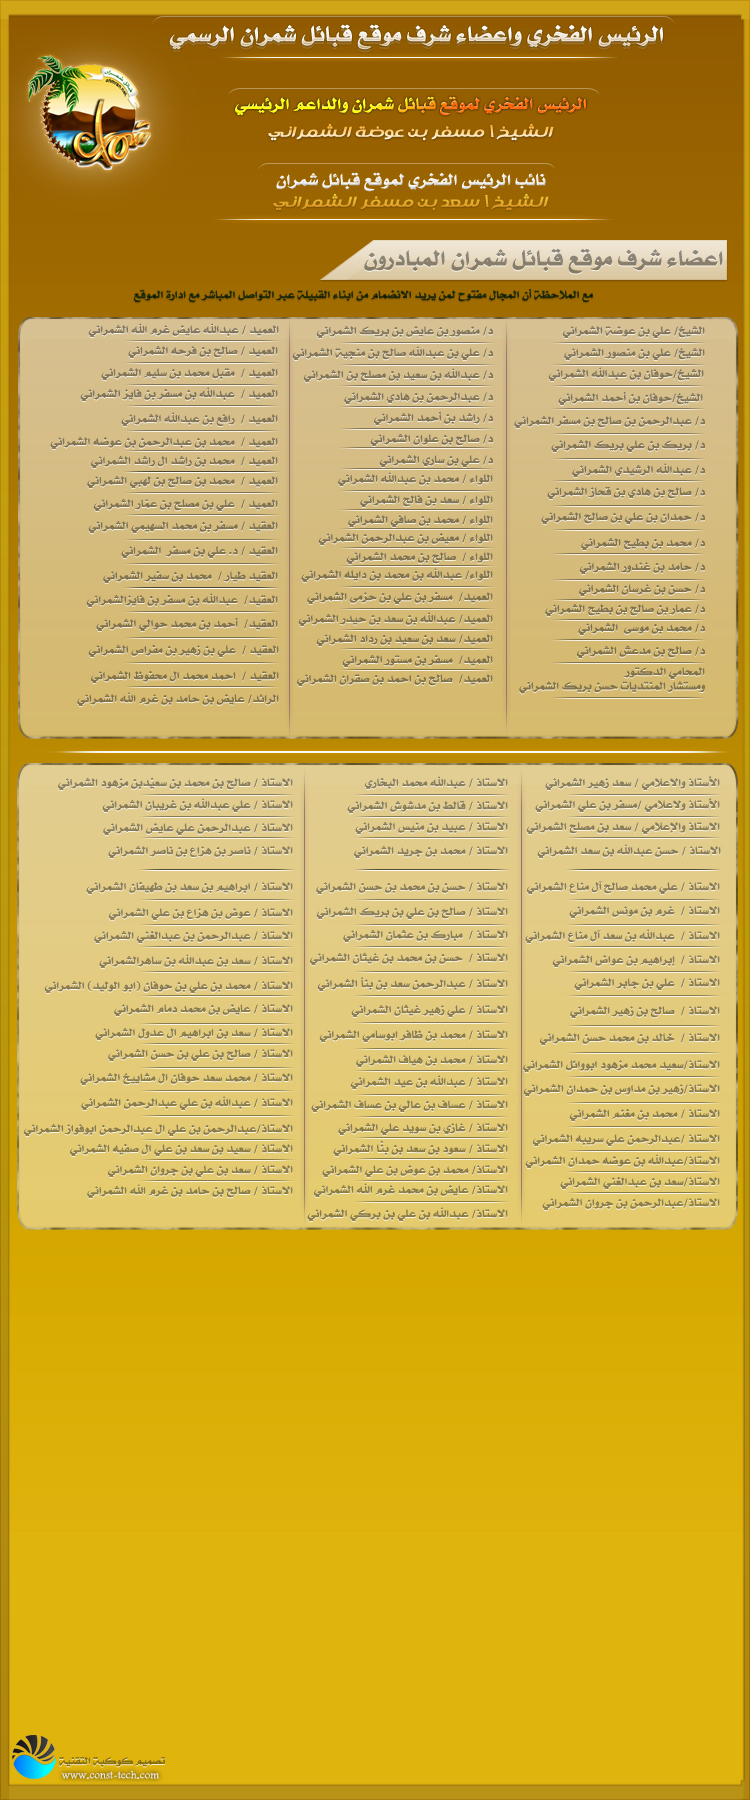 الرئيس الفخري واعضاء شرف موقع قبائل شمران الرسمي
الرئيس الفخري لموقع قبائل شمران والداعم الرئيسي
الشيخ\ مسفر بن عوضة الشمراني
نائب الرئيس الفخري لموقع قبائل شمران
الشيخ\ سعد بن مسفر الشمراني
اعضاء شرف موقع قبائل شمران المبادرون
مع الملاحظة أن المجال مفتوح لمن يريد الانضمام من ابناء القبيلة عبر التواصل المباشر مع ادارة الموقع
الشيخ/ علي بن عوضة الشمراني
الشيخ/ علي بن منصور الشمراني
الشيخ/حوفان بن عبدالله الشمراني
الشيخ/حوفان بن أحمد الشمراني
د/ عبدالرحمن بن صالح بن مسفر الشمراني
د/ بريك بن علي بريك الشمراني
د/ عبدالله الرشيدي الشمراني
د/ صالح بن هادي بن قحاز الشمراني
د/ حمدان بن علي بن صالح الشمراني
د/ محمد بن بطيح الشمراني
د/ حامد بن غندور الشمراني
د/ حسن بن غرسان الشمراني
د/ عمار بن صالح بن بطيح الشمراني
د/ محمد بن موسى الشمراني
د/ صالح بن مدعش الشمراني
المحامي الدكتور
ومستشار المنتديات حسن بريك الشمراني
د/ منصور بن عايض بن بريك الشمراني
د/ علي بن عبدالله صالح بن منجية الشمراني
د/ عبدالله بن سعيد بن مصلح بن الشمراني
د/ عبدالرحمن بن هادي الشمراني
د/ راشد بن أحمد الشمراني
د/ صالح بن علوان الشمراني
د/ علي بن ساري الشمراني
اللواء / محمد بن عبدالله الشمراني
اللواء / سعد بن فالح الشمراني
اللواء / محمد بن صافي الشمراني
اللواء / معيض بن عبدالرحمن الشمراني
اللواء / صالح بن محمد الشمراني
اللواء/ عبدالله بن محمد بن دايله الشمراني
العميد/ مسفر بن علي بن حزمى الشمراني
العميد/ عبدالله بن سعد بن حيدر الشمراني
العميد/ سعد بن سعيد بن رداد الشمراني
العميد/ مسفر بن مستور الشمراني
العميد/ صالح بن احمد بن صقران الشمراني
العميد / عبدالله عايض غرم الله الشمراني
العميد / صالح بن فرحه الشمراني
العميد / مقبل محمد بن سليم الشمراني
العميد / عبدالله بن مسفر بن فايز الشمراني
العميد / رافع بن عبدالله الشمراني
العميد / محمد بن عبدالرحمن بن عوضه الشمراني
العميد / محمد بن راشد ال راشد الشمراني
العميد / محمد بن صالح بن لهبي الشمراني
العميد / علي بن مصلح بن عمّار الشمراني
العقيد / مسفر بن محمد السهيمي الشمراني
العقيد / د. علي بن مسفر الشمراني
العقيد طيار / محمد بن سفير الشمراني
العقيد/ عبدالله بن مسفر بن فايزالشمراني
العقيد/ أحمد بن محمد حوالي الشمراني
العقيد / علي بن زهير بن مفراص الشمراني
العقيد / احمد محمد ال محفوظ الشمراني
الرائد/ عايض بن حامد بن غرم الله الشمراني
الأستاذ والاعلامي / سعد زهير الشمراني
الأستاذ ولاعلامي /مسفر بن علي الشمراني
الاستاذ والإعلامي / سعد بن مصلح الشمراني
الاستاذ / حسن عبدالله بن سعد الشمراني
الاستاذ / علي محمد صالح أل مناع الشمراني
الاستاذ / غرم بن مونس الشمراني
الاستاذ / عبدالله بن سعد أل مناع الشمراني
الاستاذ / إبراهيم بن عواض الشمراني
الاستاذ / علي بن جابر الشمراني
الاستاذ / صالح بن زهير الشمراني
الاستاذ / خالد بن محمد حسن الشمراني
الاستاذ/سعيد محمد مزهود ابووائل الشمراني
الاستاذ/زهير بن مداوس بن حمدان الشمراني
الاستاذ / محمد بن مغنم الشمراني
الاستاذ /عبدالرحمن علي سريبه الشمراني
الاستاذ/عبدالله بن عوضه حمدان الشمراني
الاستاذ/سعد بن عبدالغني الشمراني
الاستاذ/عبدالرحمن بن جروان الشمراني
الاستاذ / عبدالله محمد البخاري
الاستاذ / قالط بن مدشوش الشمراني
الاستاذ / عبيد بن منيس الشمراني
الاستاذ / محمد بن جريد الشمراني
الاستاذ / حسن بن محمد بن حسن الشمراني
الاستاذ / صالح بن علي بن بريك الشمراني
الاستاذ / مبارك بن عثمان الشمراني
الاستاذ / حسن بن محمد بن غيثان الشمراني
الاستاذ / عبدالرحمن سعد بن بنأ الشمراني
الاستاذ / علي زهير غيثان الشمراني
الاستاذ / محمد بن ظافر ابوسامي الشمراني
الاستاذ / محمد بن هياف الشمراني
الاستاذ / عبدالله بن عيد الشمراني
الاستاذ / عساف بن عالي بن عساف الشمراني
الاستاذ / غازي بن سويد علي الشمراني
الاستاذ / سعود بن سعد بن بنّا الشمراني
الاستاذ/ محمد بن عوض بن علي الشمراني
الاستاذ/ عايض بن محمد غرم الله الشمراني
الاستاذ/ عبدالله بن علي بن بركي الشمراني
الاستاذ / صالح بن محمد بن سعيّدبن مزهود الشمراني
الاستاذ / علي عبدالله بن غريبان الشمراني
الاستاذ / عبدالرحمن علي عايض الشمراني
الاستاذ / ناصر بن هزاع بن ناصر الشمراني
الاستاذ / ابراهيم بن سعد بن طهيفان الشمراني
الاستاذ / عوض بن هزاع بن علي الشمراني
الاستاذ / عبدالرحمن بن عبدالغني الشمراني
الاستاذ / سعد بن عبدالله بن ساهرالشمراني
الاستاذ / محمد بن علي بن حوفان (ابو الوليد) الشمراني
الاستاذ / عايض بن محمد دمام الشمراني
الاستاذ / سعد بن ابراهيم ال عدول الشمراني
الاستاذ / صالح بن علي بن حسن الشمراني
الاستاذ / محمد سعد حوفان ال مشاييخ الشمراني
الاستاذ / عبدالله بن علي عبدالرحمن الشمراني
الاستاذ/عبدالرحمن بن علي ال عبدالرحمن ابوفواز الشمراني
الاستاذ / سعيد بن سعد بن علي ال صفيه الشمراني
الاستاذ / سعد بن علي بن جروان الشمراني
الاستاذ / صالح بن حامد بن غرم الله الشمراني
تصميم كوكبة التقنية
www.const-tech.com